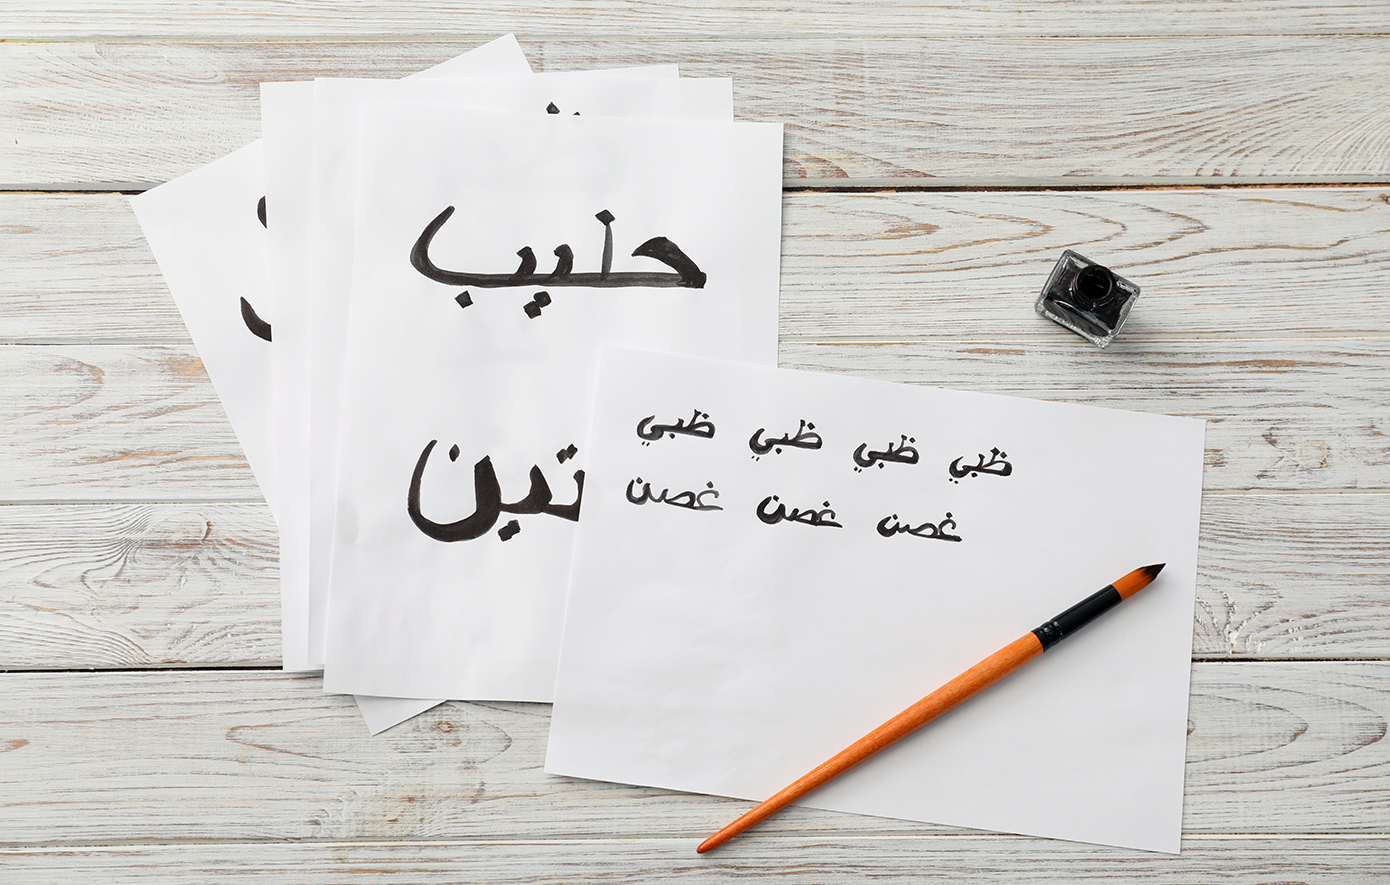 حليب
تين
ظبي ظبي ظبي ظبي
غصن غصن غصن